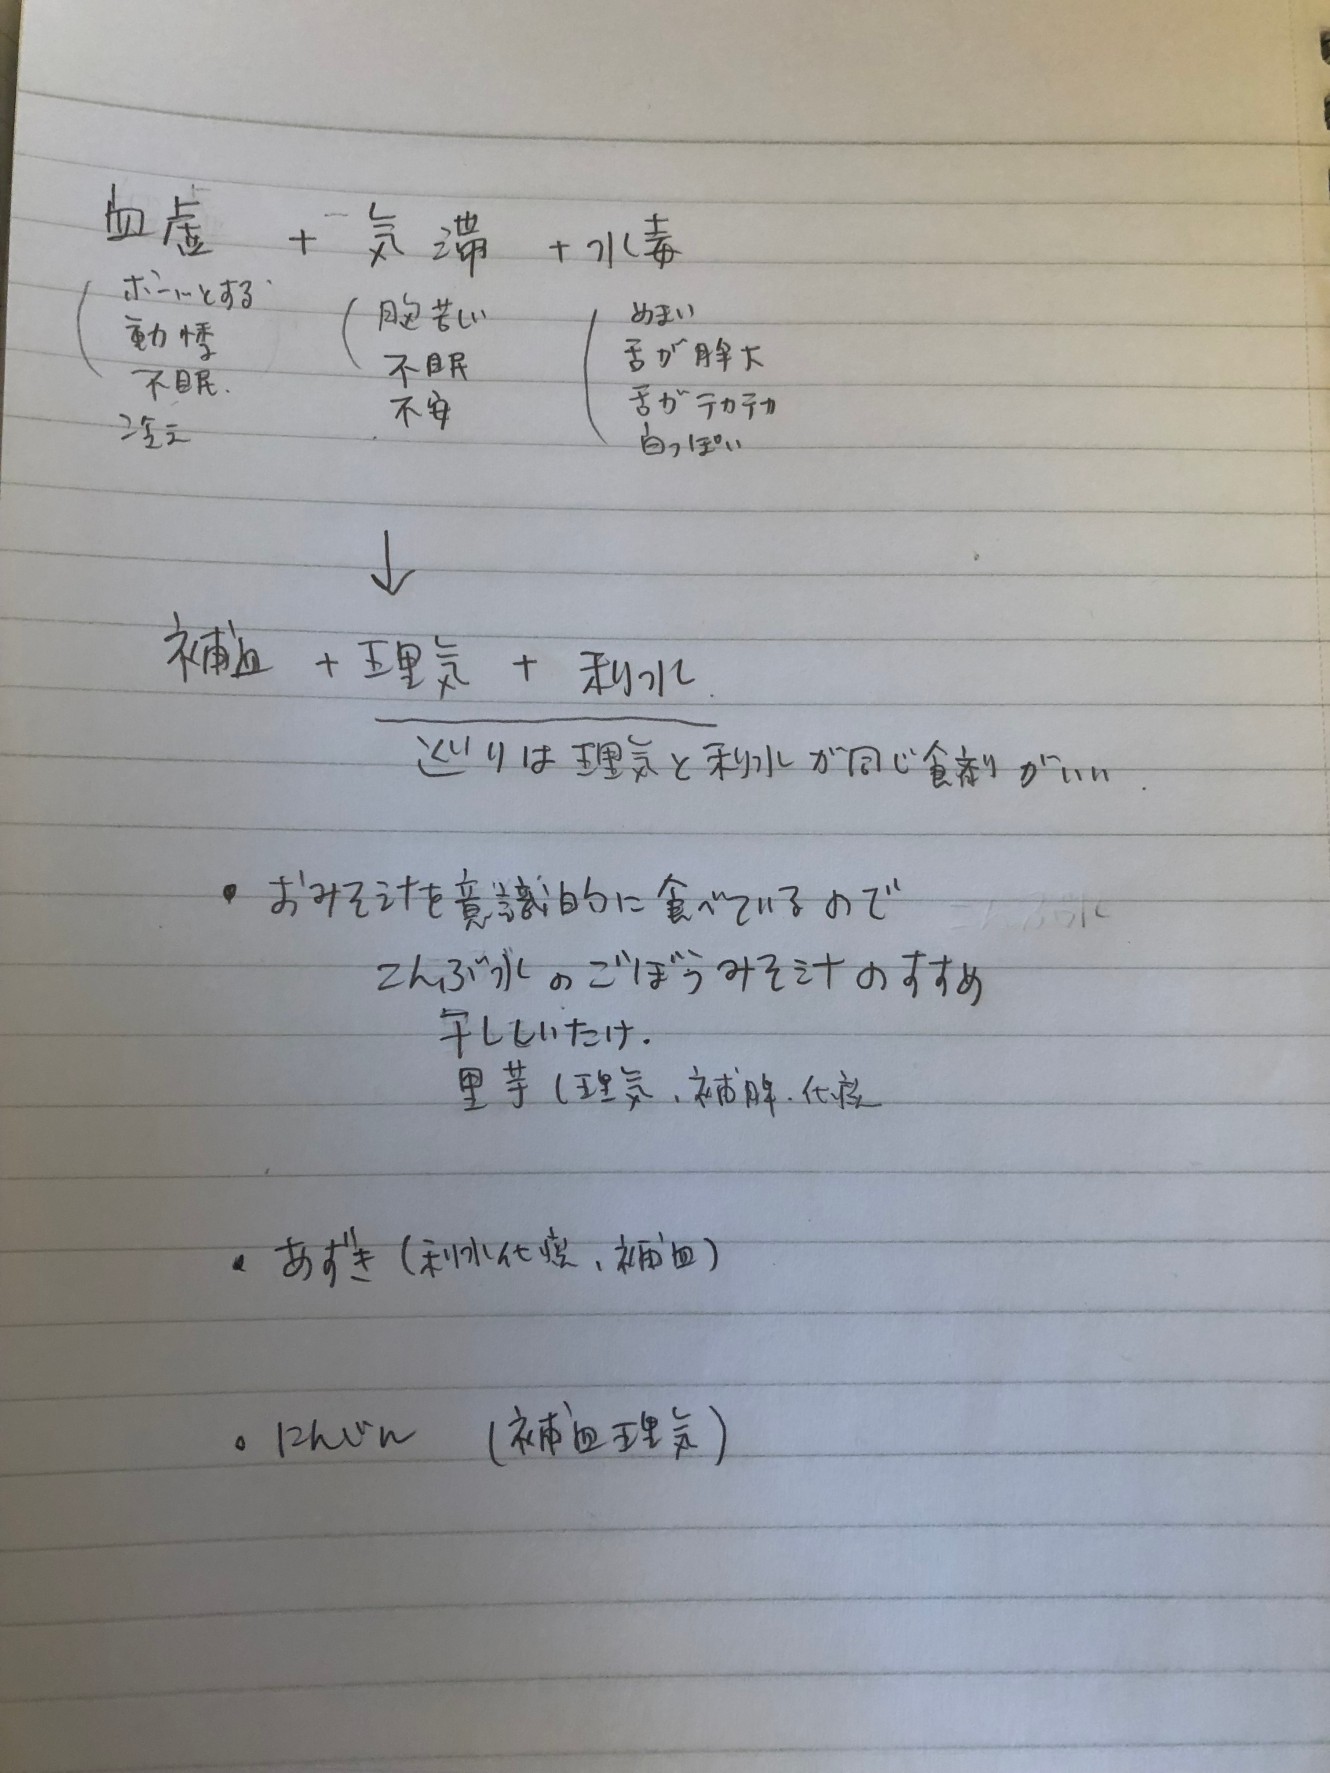 血虚 + 気滞 + 水毒
ボーッとする 胸苦しい めまい
動悸 不眠 舌が胖大
不眠. 不安 舌がテカテカ
冷え 白っぽい
↓
補血 + 理気 + 利水.
巡りは理気と利水が同じ食剤がいい.
• おみそ汁を意識的に食べているので
こんぶ水のごぼうみそ汁のすすめ
干ししいたけ.
里芋(理気、補脾.化痰
• あずき(利水化痰、補血)
• にんじん (補血理気)